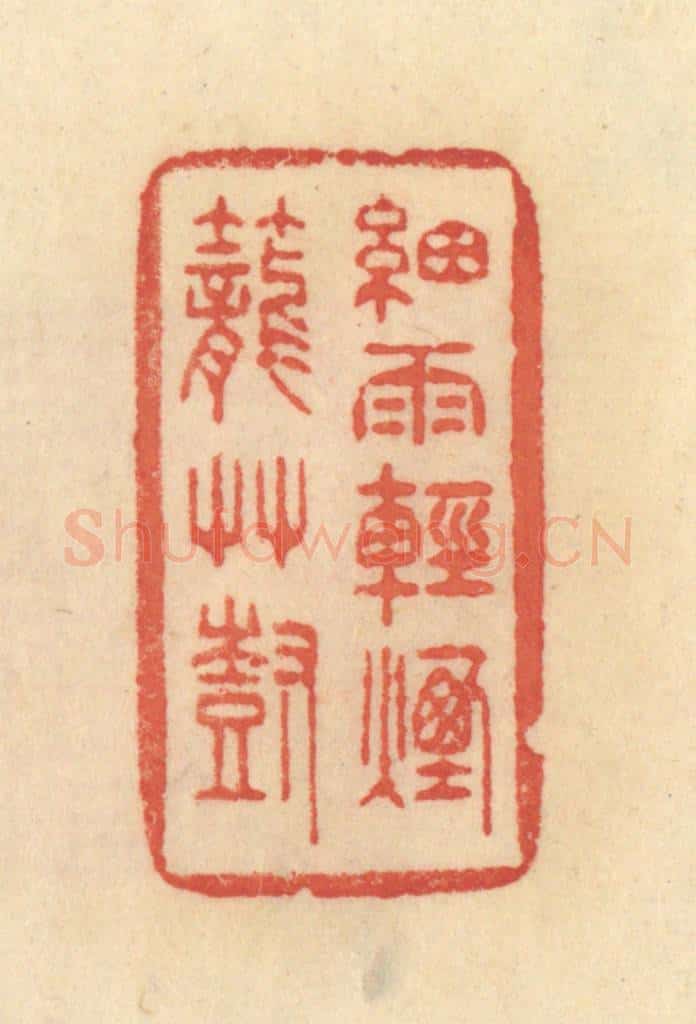 細雨輕煙
籠艸尌
Shufawang.CN